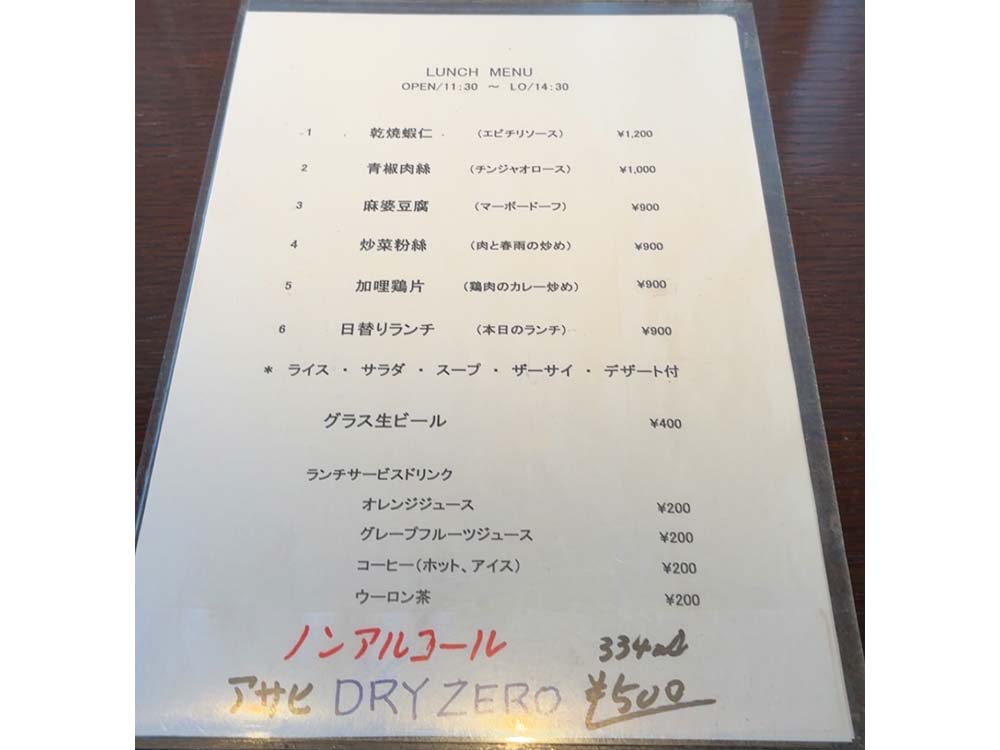 LUNCH MENU
OPEN/11:30 ～ LO/14:30
1 乾焼蝦仁 (エビチリソース) ¥1,200
2 青椒肉絲 (チンジャオロース) ¥1,000
3 麻婆豆腐 (マーボードーフ) ¥900
4 炒菜粉絲 (肉と春雨の炒め) ¥900
5 加哩鶏片 (鶏肉のカレー炒め) ¥900
6 日替りランチ (本日のランチ) ¥900
* ライス ・ サラダ ・ スープ ・ ザーサイ ・ デザート付
グラス生ビール ¥400
ランチサービスドリンク
オレンジジュース ¥200
グレープフルーツジュース ¥200
コーヒー(ホット、アイス) ¥200
ウーロン茶 ¥200
ノンアルコール 334ml
アサヒ DRY ZERO ¥500